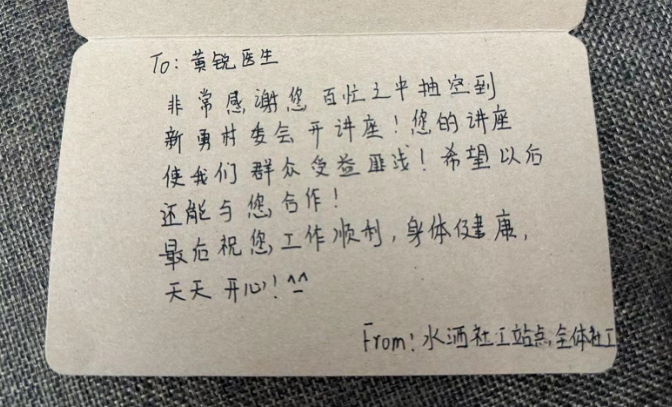 To: 黄锐医生
非常感谢您百忙之中抽空到
新勇村委会开讲座！您的讲座
使我们群众受益匪浅！希望以后
还能与您合作！
最后祝您工作顺利，身体健康，
天天开心！^_^
From: 水洒社工站点全体社工